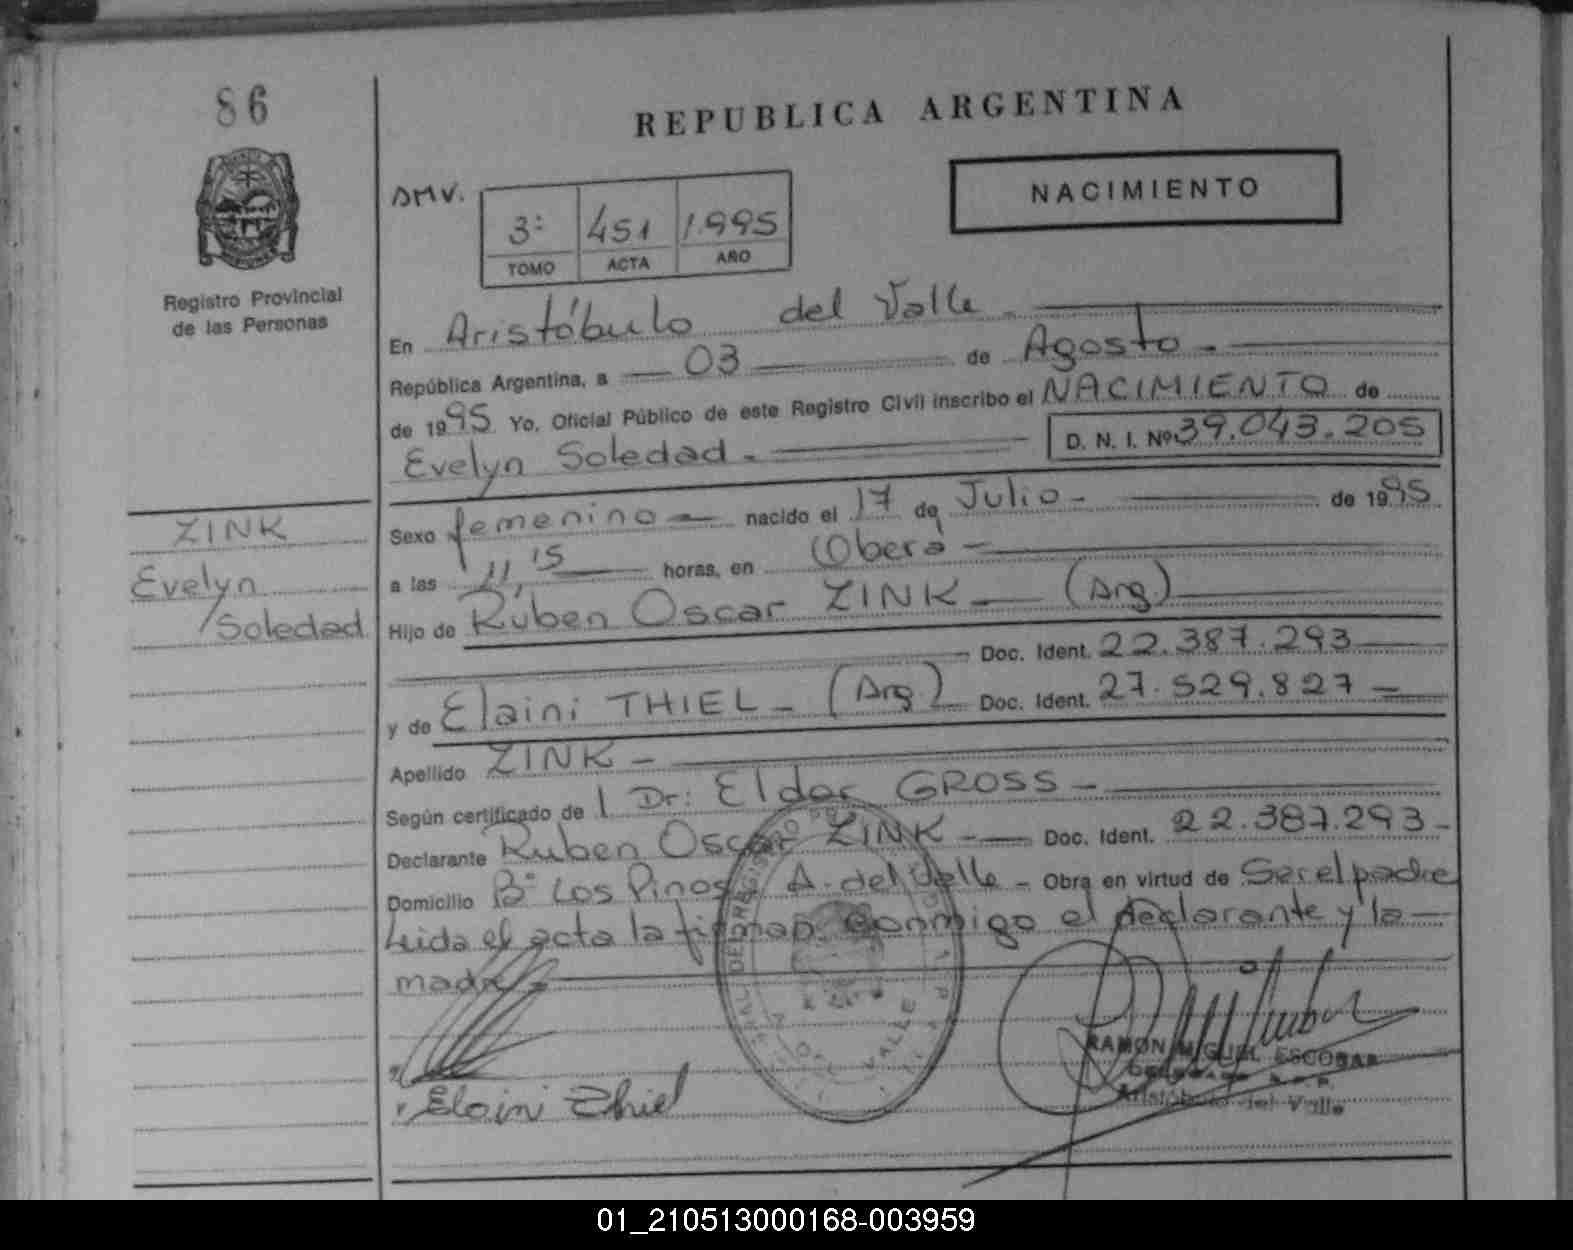 86
REPUBLICA ARGENTINA
Registro Provincial
de las Personas
DMV.
3º 451 1.995
TOMO ACTA AÑO
NACIMIENTO
En Aristóbulo del Valle
República Argentina, a 03 de Agosto
de 1995 Yo, Oficial Público de este Registro Civil inscribo el NACIMIENTO de
Evelyn Soledad D. N. I. Nº 39.043.205
ZINK
Evelyn
Soledad
Sexo femenino nacido el 17 de Julio de 1995
a las 11,15 horas, en Oberá
Hijo de Rúben Oscar ZINK (Arg)
Doc. Ident. 22.387.293
y de Elaini THIEL (Arg) Doc. Ident. 27.529.827
Apellido ZINK
Según certificado de l Dr: Eldor GROSS
Declarante Ruben Oscar ZINK Doc. Ident. 22.387.293
Domicilio Bº Los Pinos A. del Valle Obra en virtud de Ser el padre
Leida el acta la firman conmigo el declarante y la
madre
Elaini Thiel
RAMON MIGUEL ESCOBAR
Aristóbulo del Valle
01_210513000168-003959